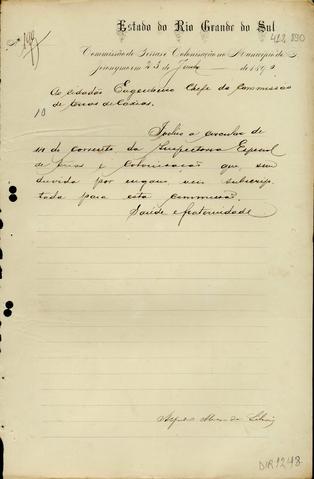 Estado do Rio Grande do Sul
412 890
Commissão de Terras e Colonisação no Municipio de S.
em 23 de Junho de 189
Ao cidadão Engenheiro Chefe da Commissão
de Terras de Caxias.
10
Junto a circular de
do corrente da Inspectoria Especial
de Terras e Colonisação que sem
duvida por engano, veio subscrip-
tada para esta commissão.
Saúde e fraternidade
DIR1248